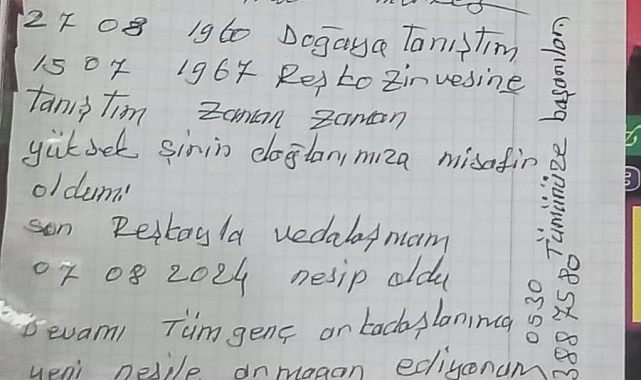 27 08 1960 Doğaya Tanıştim
15 07 1967 Reşko zirvesine
Tanıştim zaman zaman
yüksek şirin dağlarımıza misafir
oldum!
son Reşkoyla vedalaşmam
07 08 2024 nesip oldu
Devamı Tüm genç arkadaşlarıma
yeni nesile armağan ediyorum
0530 Tümünüze başarılar
388 75 80